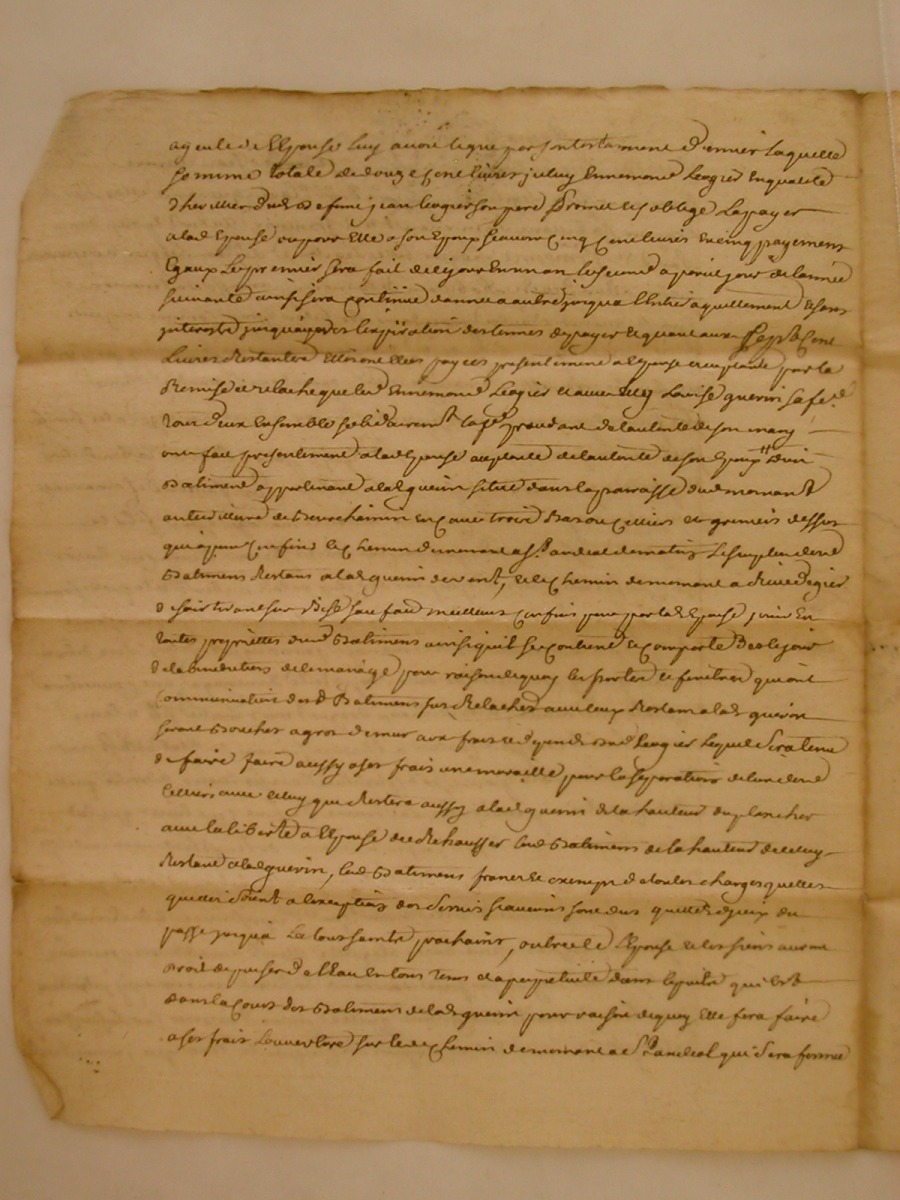 ayeule de lEpouse luy avoit legue par son testament dernier laquelle
somme totale de douze cent livres jceluy Ennemond Leogier En qualité
dheritier dud deffunt jean leogier son pere promet et soblige la payer
a lad Epouse ou pour Elle a son Epoux scavoir cinq cent livres en cinq payements
Egaux le premier sera fait de cejour en un an le second a pareil jour de lannée
suivante ainsi sera continué dannée a autre jusqua lentier aquittement et sans
interests jusquapres lexpiration des termes de payer et quant aux sept cent
Livres Restantes Elles ont Ettes payées presentement a lEpouse acceptante par la
Remise et relache que led Ennemond Leogier et avec luy Louise guerin sa fe
tous deux Ensemble solidairemt procedant de lautorité de son mary
ont fait presentement a lad Epouse acceptante de lautorité de son Epoux dun
Batiment appartenant a lad guerin situé dans la parroisse dud mornant
au territoire de En cave trois Bas ou Celliers et greniers dessus
qui a pour confins le chemin de mornant a St andeol de matin le surplus desd
Batimens Restans a lad guerin de vent, et le chemin de mornant a Rivedegier
de soir tirant sur Bise sauf meilleurs confins pour par lad Epouse jouir En
toutes proprietes dud Batimens ainsi quil se contient et comporte des le jour
de la benediction de le mariage pour raison de quoy les portes et fenêtres qui ont
Communication des d Batimens sus Relachés avec ceux Restans a lad guerin
seront Bouchés a gros de mur aux frais et depends dud Leogier lequel sera tenu
de faire faire aussy a ses frais une muraille pour la separation de lun desd
Celliers avec celuy qui Restera aussy a lad guerin de la hauteur du plancher
avec la liberté a lEpouse de Rehausser led Batimens de la hauteur de celuy
Restant a lad guerin, led Batimens francs et exempt de toutes charges quelles
quelles soient a lexception des servis qui sont dus quitte diceux du
passé jusqua La toussaints prochaine, outre ce lEpouse et les siens auront
Droit de puiser de lEau En tous tems et a perpetuité dans le puits qui Est
dans la Cour des Batimens de lad guerin pour raison de quoy Elle fera faire
a ses frais Louverture sur led chemin de mornant a St andeol qui sera fermée